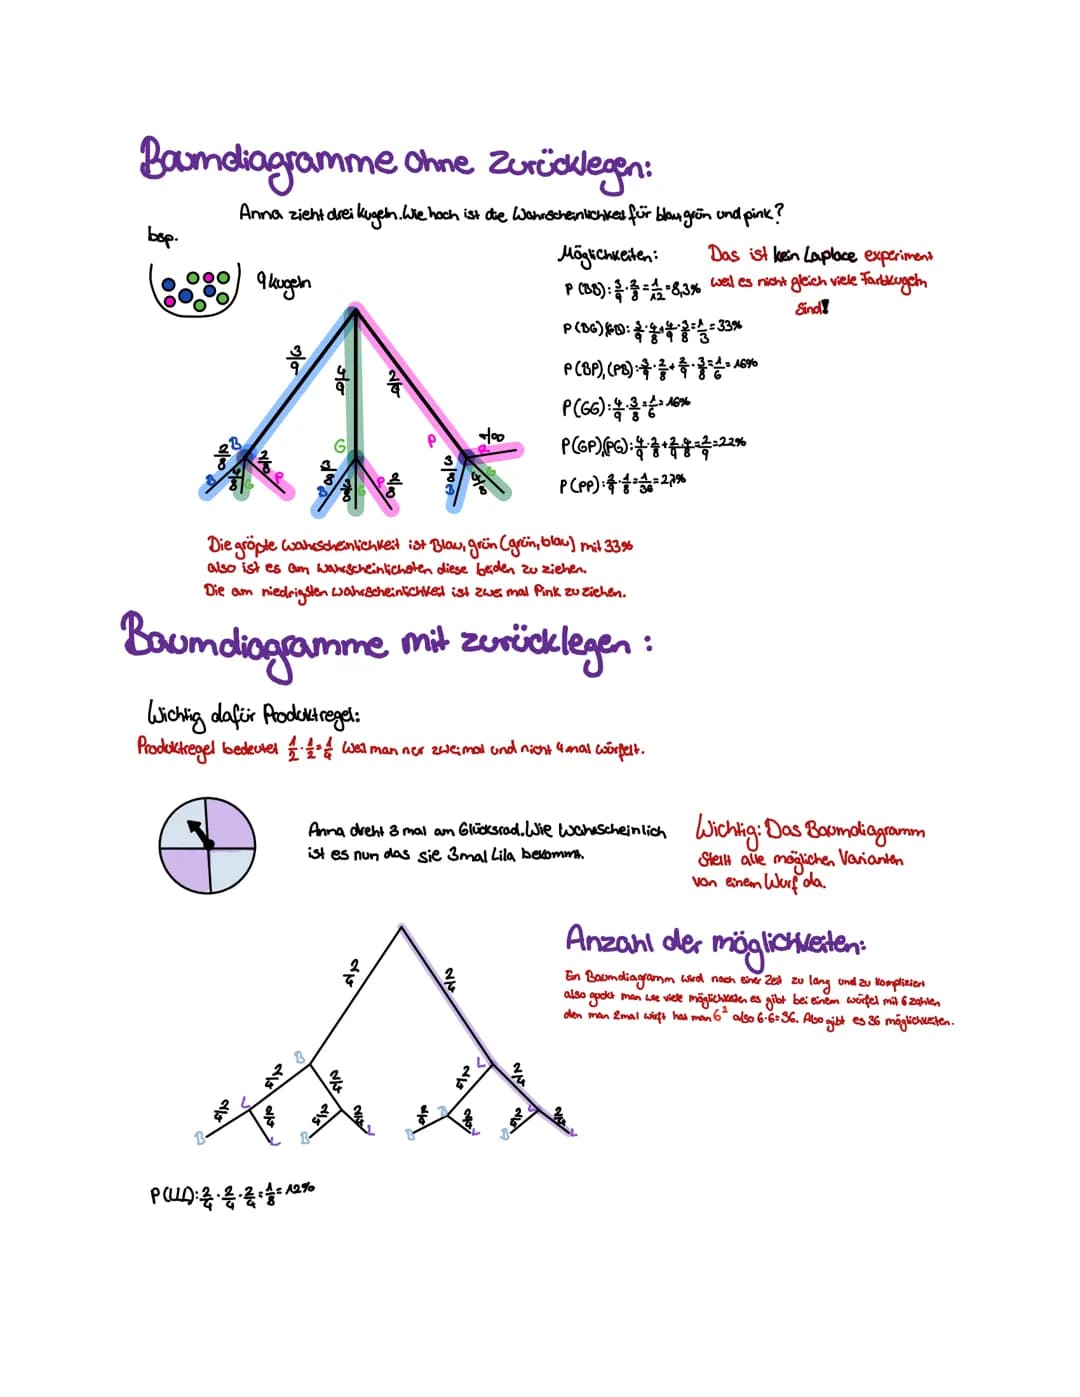 Baumdiagramme ohne Zurücklegen:
Anna zieht drei kugeln. Wie hoch ist die Wahrscheinlichkeit für blau, grün und pink?
bsp.
9 kugeln
Möglichkeiten:
Das ist kein Laplace experiment
weil es nicht gleich viele Farbkugeln
sind!
P(BB): 3/9 · 2/8 = 1/12 = 8,3%
P(BG)(GB): 3/9 · 4/8 + 4/9 · 3/8 = 1/3 = 33%
P(BP),(PB): 3/9 · 2/8 + 2/9 · 3/8 = 1/6 = 16%
P(GG): 4/9 · 3/8 = 1/6 = 16%
P(GP)(PG): 4/9 · 2/8 + 2/9 · 4/8 = 2/9 = 22%
P(PP): 2/9 · 1/8 = 1/36 = 2,7%
3/9 4/9 2/9
B G P
2/8 4/8 2/8 3/8 3/8 2/8 3/8 4/8 1/8
B G P B G P B G P
Die größte Wahrscheinlichkeit ist Blau, grün (grün, blau) mit 33%
also ist es am wahrscheinlichsten diese beiden zu ziehen.
Die am niedrigsten Wahrscheinlichkeit ist zwei mal Pink zu ziehen.
Baumdiagramme mit zurücklegen:
Wichtig dafür Produktregel:
Produktregel bedeutet 1/2 · 1/2 = 1/4 weil man nur zweimal und nicht 4mal würfelt.
Anna dreht 3 mal am Glücksrad. Wie Wahrscheinlich
ist es nun das sie 3mal Lila bekommt.
Wichtig: Das Baumdiagramm
stellt alle möglichen Varianten
von einem Wurf da.
Anzahl der möglichkeiten:
Ein Baumdiagramm wird nach einer Zeit zu lang und zu kompliziert
also guckt man wie viele möglichkeiten es gibt bei einem würfel mit 6 zahlen
den man 2mal wirft hat man 6² also 6·6=36. Also gibt es 36 möglichkeiten.
2/4 2/4
B L
2/4 2/4 2/4 2/4
L B L
2/4 2/4 2/4 2/4 2/4 2/4 2/4 2/4
B L B L B L B L
P(LLL): 2/4 · 2/4 · 2/4 = 1/8 = 12%